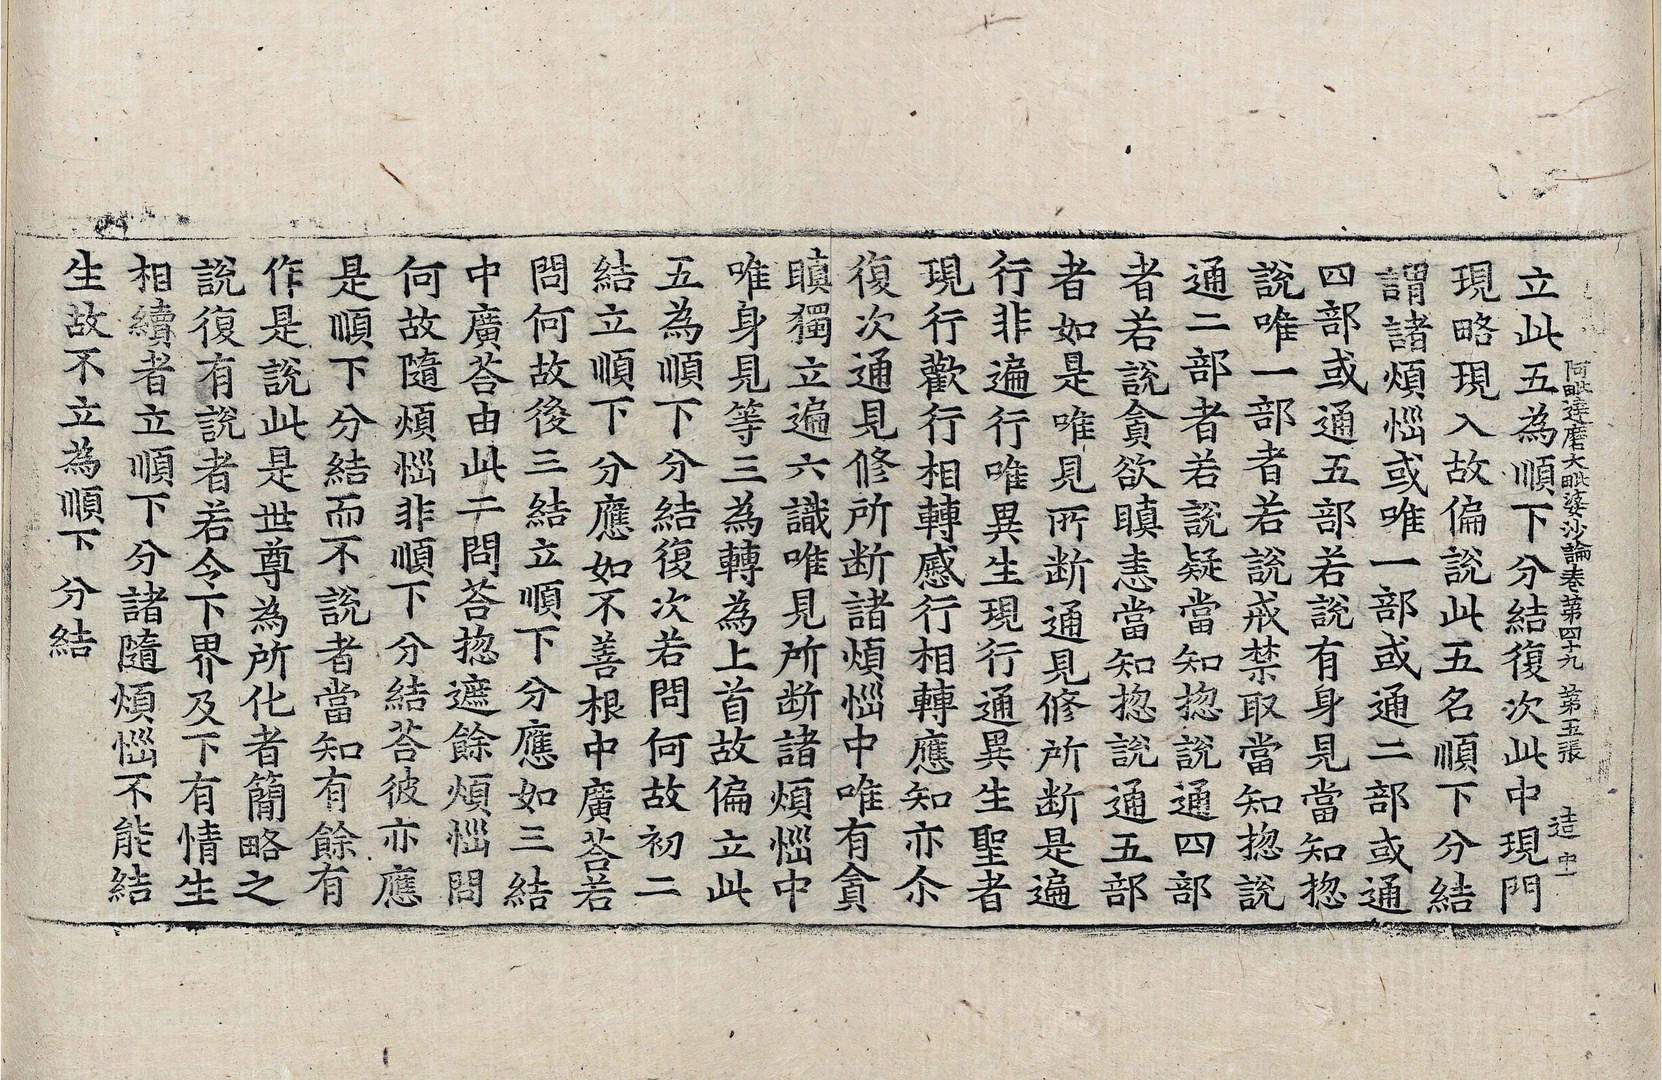 阿毗達磨大毗婆沙論卷第四十九 第五張 造 中
立此五為順下分結復次此中現門
現略現入故偏說此五名順下分結
謂諸煩惱或唯一部或通二部或通
四部或通五部若說有身見當知惣
說唯一部者若說戒禁取當知惣說
通二部者若說疑當知惣說通四部
者若說貪欲瞋恚當知惣說通五部
者如是唯見所斷通見修所斷是遍
行非遍行唯異生現行通異生聖者
現行歡行相轉慼行相轉應知亦尒
復次通見修所斷諸煩惱中唯有貪
瞋獨立遍六識唯見所斷諸煩惱中
唯身見等三為轉為上首故偏立此
五為順下分結復次若問何故初二
結立順下分應如不善根中廣荅若
問何故後三結立順下分應如三結
中廣荅由此二問荅惣遮餘煩惱問
何故隨煩惱非順下分結荅彼亦應
是順下分結而不說者當知有餘有
作是說此是世尊為所化者簡略之
說復有說者若令下界及下有情生
相續者立順下分諸隨煩惱不能結
生故不立為順下分結